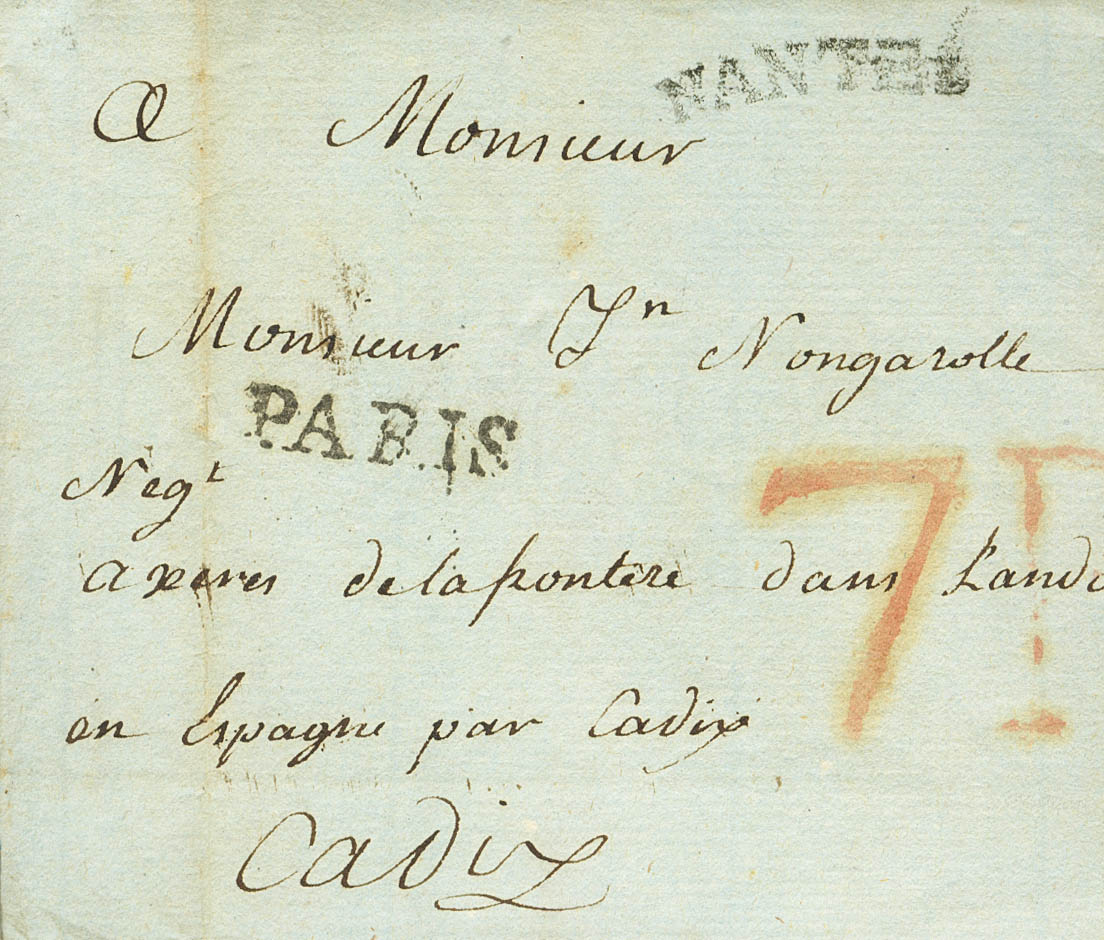 NANTES
A Monsieur
Monsieur Jn Nongarolle
PARIS
Negt
a xeres delafrontere dans L'anda
en Espagne par Cadix
Cadix
7